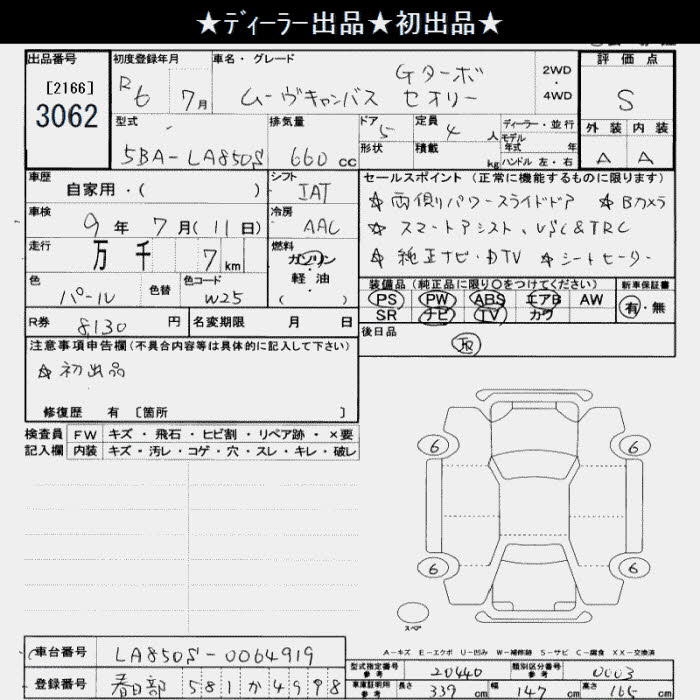 ★ディーラー出品★初出品★
出品番号 初度登録年月 車名・グレード 評価点
[2166] R6 7月 Gターボ 2WD
3062 ムーヴキャンバス セオリー ・4WD S
型式 排気量 ドア 5 定員 4人 ディーラー・並行 外装 内装
5BA-LA850S 660cc モデル年式 年 A A
形状 積載 kg ハンドル 左・右
車歴 シフト セールスポイント(正常に機能するものに限ります)
自家用・( ) IAT ☆両側パワースライドドア ☆Bカメラ
車検 9年7月(11日) 冷房 AAC ☆スマートアシスト、VSC&TRC
走行 万 千 7km 燃料 ガソリン・軽油 ( ) ☆純正ナビ・DTV ☆シートヒーター
色 パール 色替 色コード W25 装備品(純正品に限り〇をつけてください) 新車保証書
PS PW ABS エアB AW 有・無
R券 8,130円 名変期限 月 日 SR ナビ TV カワ
後日品 JR
注意事項申告欄(不具合内容等は具体的に記入して下さい)
☆初出品
修復歴 有 [箇所 ]
検査員 FW キズ・飛石・ヒビ割・リペア跡・×要
記入欄 内装 キズ・汚レ・コゲ・穴・スレ・キレ・破レ
6 6
6 6
スペア
A-キズ E-エクボ U-凹み W-補修跡 S-サビ C-腐食 XX-交換済
車台番号 LA850S-0064919
型式指定番号 参考 20440 類別区分番号 参考 0003
登録番号 春日部 581 か 4998
車庫証明用 参考 長さ 339cm 幅 147cm 高さ 165cm